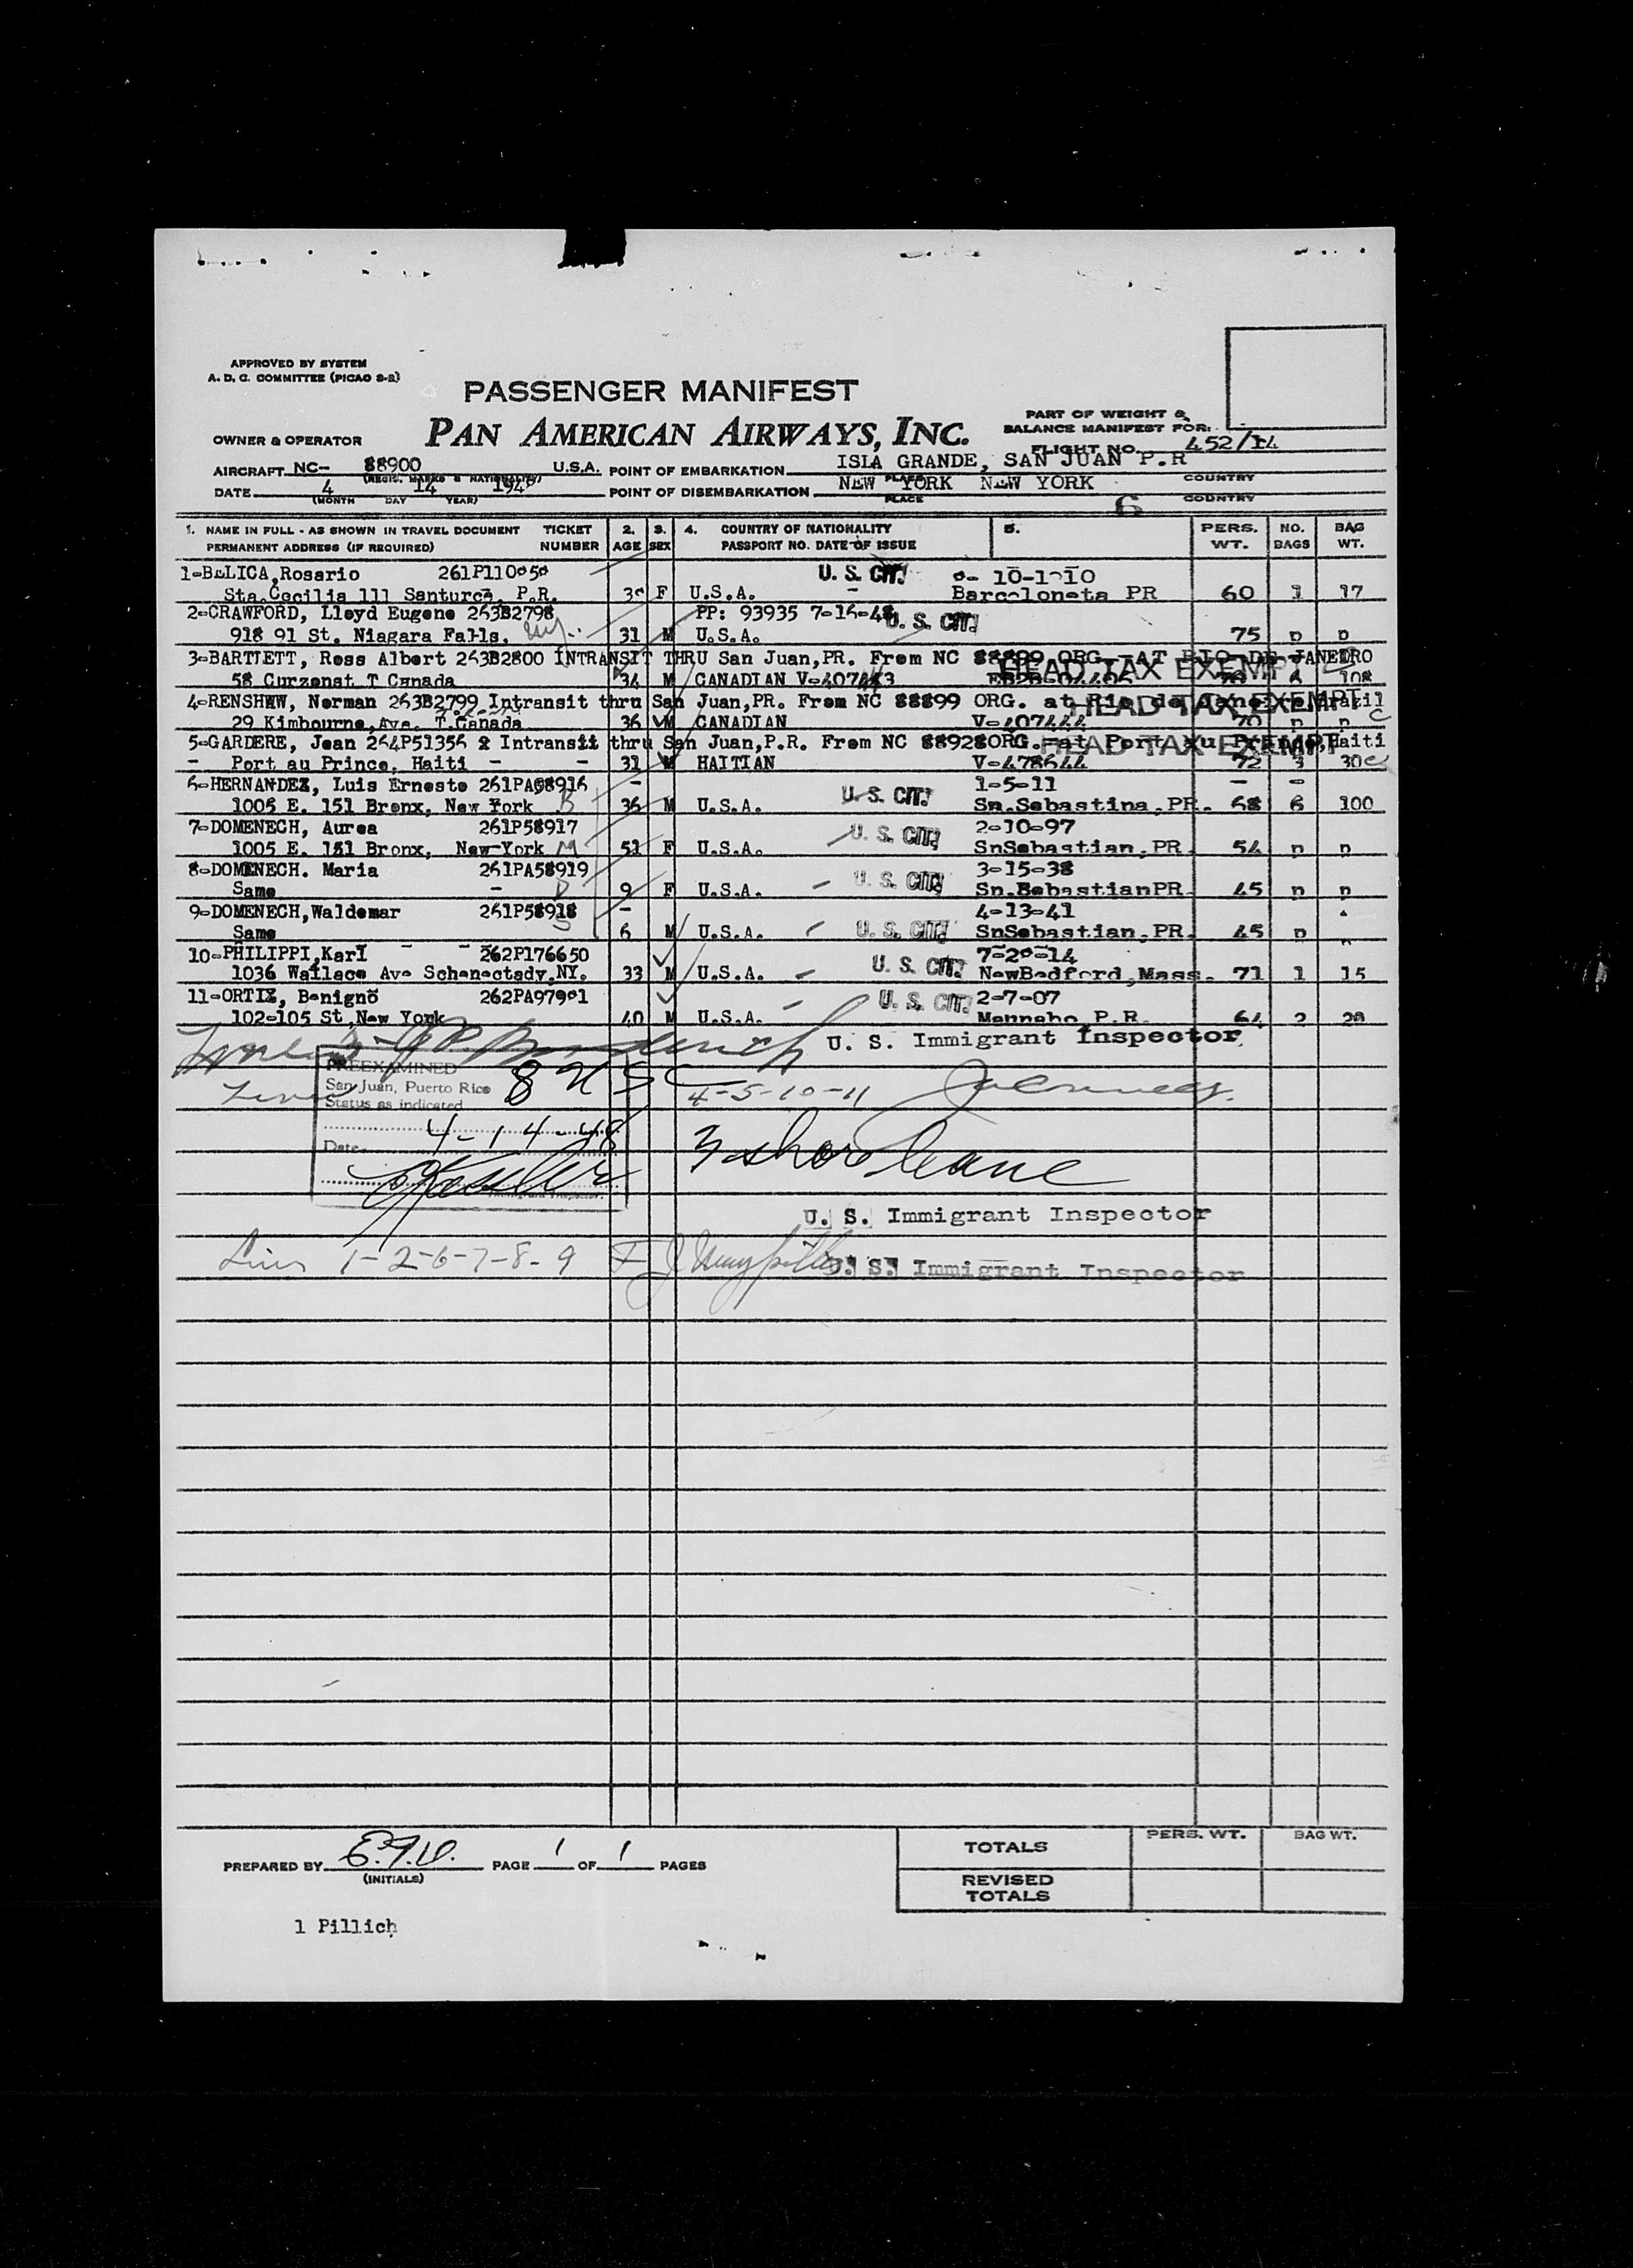 APPROVED BY SYSTEM
A. D. C. COMMITTEE (PICAO 2-2)
PASSENGER MANIFEST
PAN AMERICAN AIRWAYS, INC.
PART OF WEIGHT &
BALANCE MANIFEST FOR:
OWNER & OPERATOR
FLIGHT NO. 452/14
AIRCRAFT NC- 88900 U.S.A. POINT OF EMBARKATION ISLA GRANDE, SAN JUAN P.R
(REGIS. MARKS & NATIONALITY) PLACE COUNTRY
DATE 4 14 194 POINT OF DISEMBARKATION NEW YORK NEW YORK
(MONTH DAY YEAR) PLACE COUNTRY
6
1. NAME IN FULL - AS SHOWN IN TRAVEL DOCUMENT TICKET 2. 3. 4. COUNTRY OF NATIONALITY 5. PERS. NO. BAG
PERMANENT ADDRESS (IF REQUIRED) NUMBER AGE SEX PASSPORT NO. DATE OF ISSUE WT. BAGS WT.
1-BELICA,Rosario U. S. CIT.
Sta.Cecilia 111 Santurce, P.R. F U.S.A. - Barceloneta PR 60 1 17
2-CRAWFORD, Lloyd Eugene 263B2798 PP: 93935 7-16-48 U. S. CIT.
918 91 St. Niagara Falls, 31 M U.S.A. 75 n n
3-BARTIETT, Ross Albert 263B2800 INTRANSIT THRU San Juan,PR. From NC 88899 ORG. AT RIO DE JANEIRO
HEAD TAX EXEMPT
58 Curzonst T Canada 34 M CANADIAN 108
4-RENSHAW, Norman 263B2799 Intransit thru San Juan,PR. From NC 88899 ORG. at Rio de Janeiro Brazil
HEAD TAX EXEMPT
29 Kimbourne,Ave. T.Canada 36 M CANADIAN V-407444 70 n n
5-GARDERE, Jean 264P51356 2 Intransit thru San Juan,P.R. From NC 88928 ORG. at Port au Prince,Haiti
HEAD TAX EXEMPT
- Port au Prince, Haiti - - 31 M HAITIAN V-478644 72 3 30
6-HERNANDEZ, Luis Ernesto 261PA98916 - U. S. CIT. 1-5-11 - -
1005 E. 151 Bronx, New York 36 M U.S.A. Sn.Sebastina,PR. 68 6 100
7-DOMENECH, Aurea 261P58917 U. S. CIT. 2-10-97
1005 E. 151 Bronx, New York 51 F U.S.A. SnSebastian,PR. 54 n n
8-DOMENECH. Maria 261PA58919 U. S. CIT. 3-15-38
Same - 9 F U.S.A. Sn.SebastianPR. 45 n n
9-DOMENECH,Waldemar 261P58918 - 4-13-41
Same 6 M U.S.A. U. S. CIT. SnSebastian,PR. 45 n
10-PHILIPPI,Karl 262P176650 U. S. CIT. 7-20-14
1036 Wallace Ave Schenectady,NY. 33 M U.S.A. NewBedford,Mass. 71 1 15
11-ORTIZ, Benigno 262PA97901 U. S. CIT. 2-7-07
102-105 St,New York 40 M U.S.A. Maunabo P.R. 64 2 20
U. S. Immigrant Inspector
PREEXAMINED
San Juan, Puerto Rico 8 USC
Status as indicated 4-5-10-11
Date 4-14-48
3-shore leave
Immigrant Inspector.
U. S. Immigrant Inspector
Lines 1-2-6-7-8-9
U. S. Immigrant Inspector
TOTALS PERS. WT. BAG WT.
PREPARED BY PAGE 1 OF 1 PAGES
(INITIALS)
REVISED
TOTALS
1 Pillich